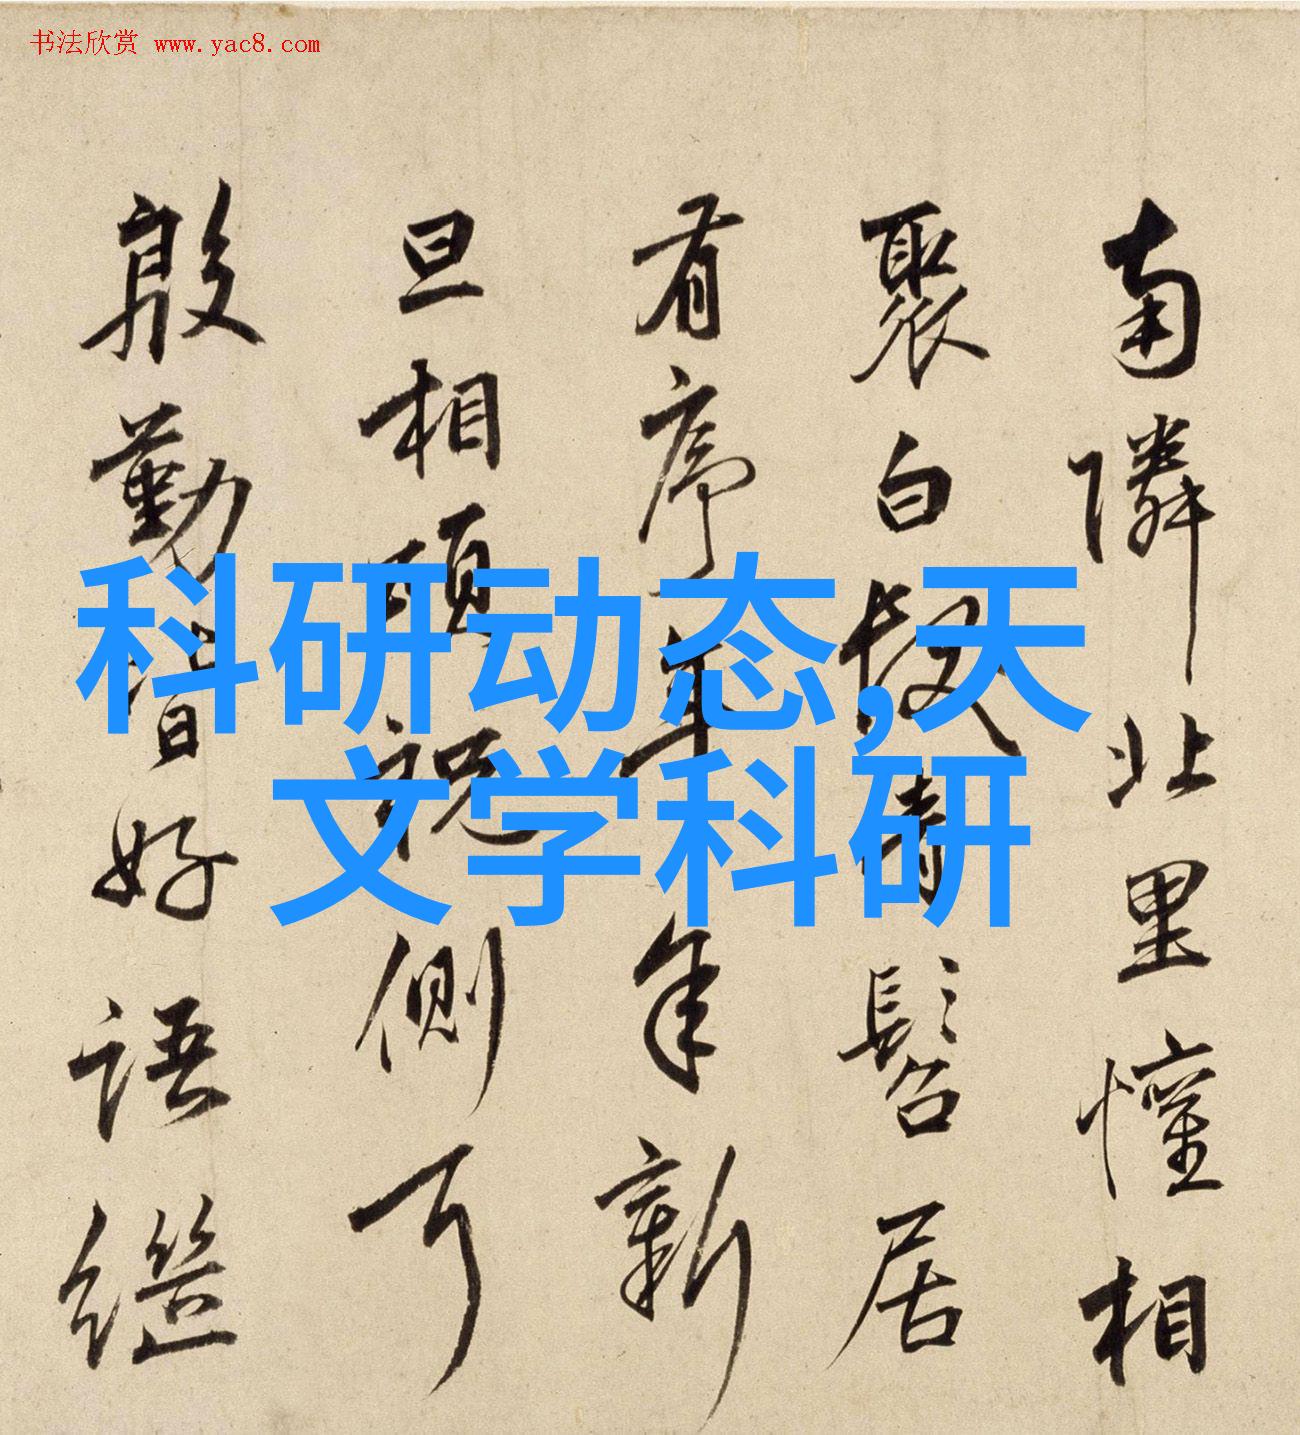 书法欣赏 www.yac8.com
南隣北里懽相
聚白髮青髫居
有序年年新
旦相祝側
殷勤好語繼
科研动态,天
文学科研